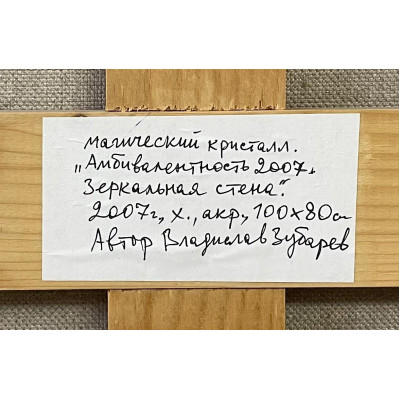 магический кристалл.
„Амбивалентность 2007.
Зеркальная стена".
2007г., х., акр., 100х80см
Автор Владислав Зубарев